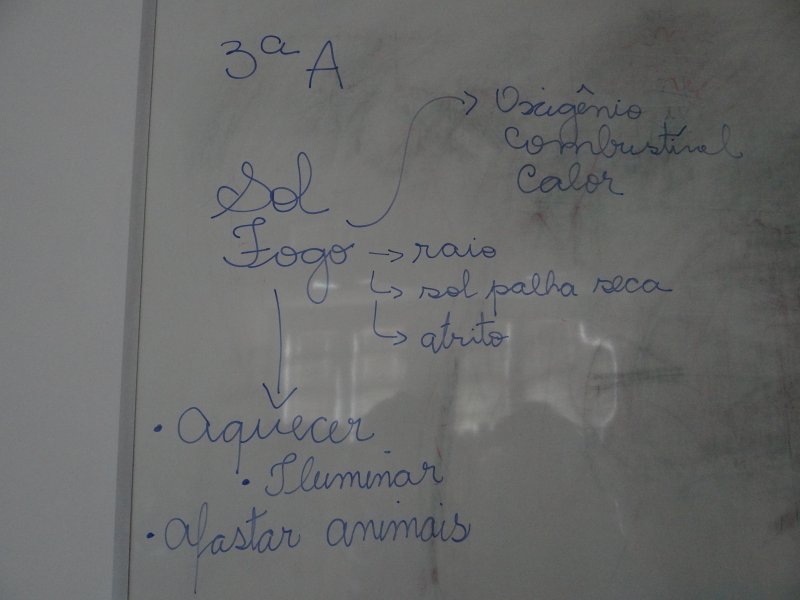 3ª A
Oxigênio
Combustível
Calor
Sol
Fogo → raio
↳ sol palha seca
↳ atrito
• Aquecer
• Iluminar
• Afastar animais